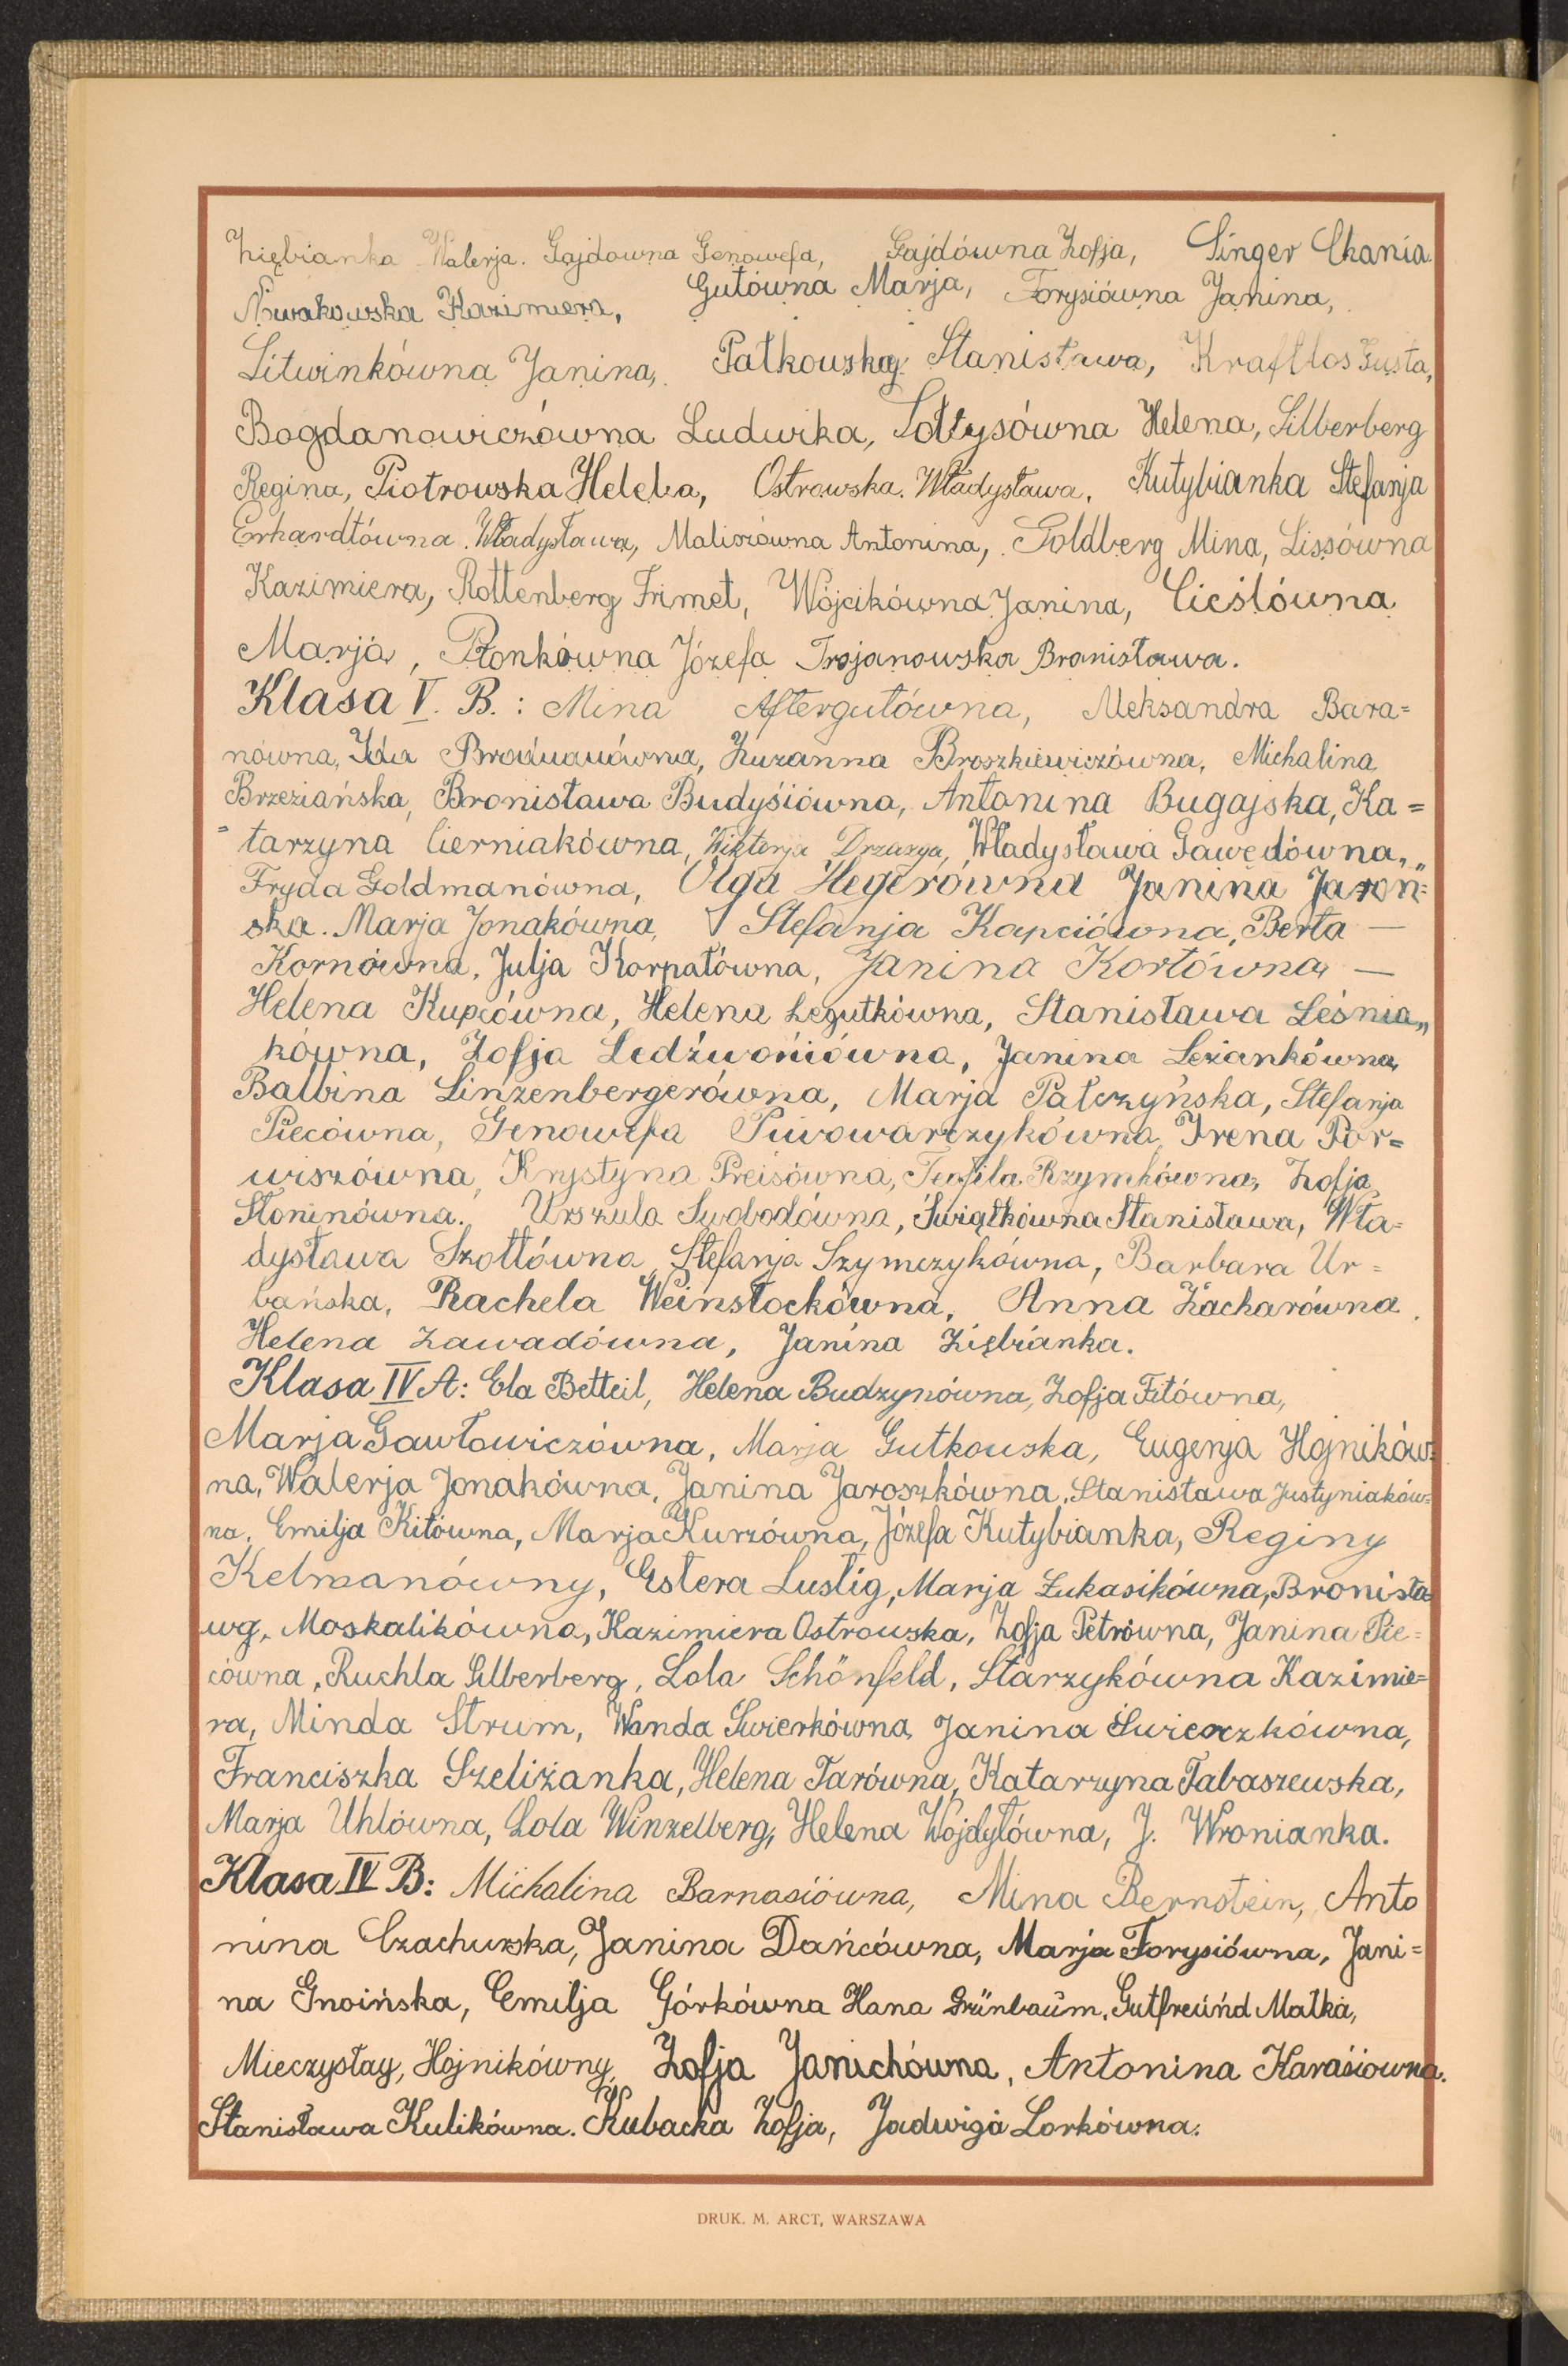 Ziębianka Walerja. Gajdowna Genowefa, Gajdówna Zofja, Singer Chania.
Nowakowska Kazimiera, Gutówna Marja, Forysiówna Janina,
Litwinkówna Janina, Patkowska Stanisława, Kraftlos Gusta,
Bogdanowiczówna Ludwika, Sołtysówna Helena, Silberberg
Regina, Piotrowska Helena, Ostrowska Władysława, Kutybianka Stefanja
Erhardtówna Władysława, Maliszówna Antonina, Goldberg Mina, Lissówna
Kazimiera, Rottenberg Frimet, Wójcikówna Janina, Cieślówna
Marja, Płonkówna Józefa Trojanowska Bronisława.
Klasa V. B.: Mina Aftergutówna, Aleksandra Bara=
nówna, Ida Zuzanna Broszkiewiczówna, Michalina
Brzeziańska, Bronisława Budyśiówna, Antonina Bugajska, Ka=
=tarzyna Cierniakówna, Wiktorja Drzazga, Władysława Gawędówna,
Fryda Goldmanówna, Olga Hegerówna Janina Jaroń=
ska. Marja Jonakówna, Stefanja Kapciówna, Berta —
Kornówna, Julja Korpatówna, Janina Kortówna —
Helena Kupcówna, Helena Legutkówna, Stanisława Leśnia„
kówna, Zofja Ledźwońiówna, Janina Leziankówna,
Balbina Linzenbergerówna, Marja Pałczyńska, Stefanja
Piecówna, Genowefa Piwowarczykówna, Irena Por=
wiszówna, Krystyna Preisówna, Teofila Rzymkówna, Zofja
Słoninówna. Urszula Swobodówna, Świątkówna Stanisława, Wła=
dysława Szottówna, Stefanja Szymczykówna, Barbara Ur=
bańska, Rachela Weinstockówna, Anna Zacharówna,
Helena Zawadówna, Janina Ziębianka.
Klasa IV A: Ela Betteil, Helena Budzynówna, Zofja Fitówna,
Marja Gawłowiczówna, Marja Gutkowska, Eugenja Hojników=
na, Walerja Jonakówna, Janina Jaroszkówna, Stanisława Justyniaków=
na, Emilja Kitówna, Marja Kurzówna, Józefa Kutybianka, Reginy
Kelmanówny, Estera Lustig, Marja Łukasikówna, Bronisła
wą, Moskalikówna, Kazimiera Ostrowska, Zofja Petrówna, Janina Pie=
cówna, Ruchla Silberberg, Lola Schönfeld, Starzykówna Kazimie=
ra, Minda Strum, Wanda Świerkówna, Janina Świerczkówna,
Franciszka Szeliżanka, Helena Tarówna, Katarzyna Tabaszewska,
Marja Uhlówna, Lola Winzelberg, Helena Wojdyłówna, J. Wronianka.
Klasa IV B: Michalina Barnasiówna, Mina Bernstein, Anto
nina Czachurska, Janina Dańcówna, Marja Forysiówna, Jani=
na Gnoińska, Emilja Górkówna Hana Grünbaum, Gutfreund Malka,
Mieczysławy, Hojnikówny, Zofja Janichówna, Antonina Karaśiowna.
Stanisława Kulikówna. Kubacka Zofja, Jadwiga Lorkówna.
DRUK. M. ARCT, WARSZAWA